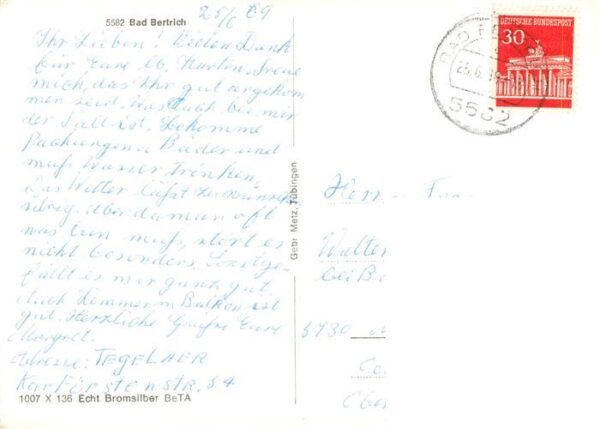 25/6 69
5582 Bad Bertrich
Ihr Lieben! Vielen Dank
für Eure lb. Karten. Freue
mich, das Ihr gut angekom
men seid. Was auch bei mir
der Fall ist. Bekomme
Packungen u Bäder und
muß Wasser trinken.
Das Wetter läßt zu wünschen
übrig. Aber da man oft
was tun muß, stört es
nicht besonders. Sonst ge-
fällt es mir ganz gut.
Auch Zimmer m Balkon ist
gut. Herzliche Grüße Eure
Margret.
Adresse: TEGELHER
Kurfürstenstr. 54
1007 X 136 Echt Bromsilber BeTA
Gebr Metz, Tübingen
DEUTSCHE BUNDESPOST
30
BAD BE
25.6.
5582
Herrn
Walter
bei